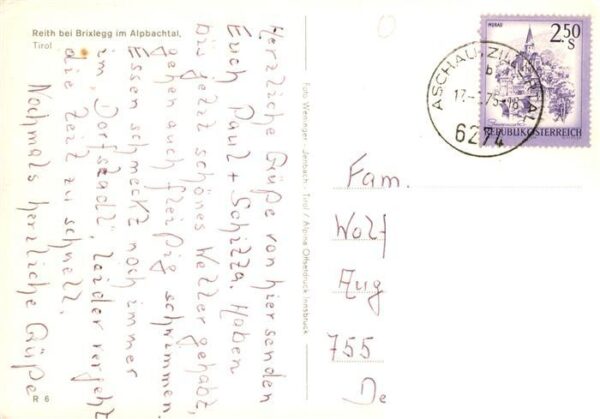 Reith bei Brixlegg im Alpbachtal,
Tirol
Herzliche Grüße von hier senden
Euch Paul + Schitza. Haben
bis jetzt schönes Wetter gehabt,
gehen auch fleißig schwimmen.
Essen schmeckt noch immer
im „Dorfstadl", leider vergeht
die Zeit zu schnell.
Nochmals herzliche Grüße
R 6
Foto Weninger - Jenbach - Tirol / Alpine Offsetdruck Innsbruck
MURAU
2.50
S
REPUBLIK ÖSTERREICH
ASCHAU-ZILLERTAL
b
6274
Fam.
Wolf
Aug
755
De